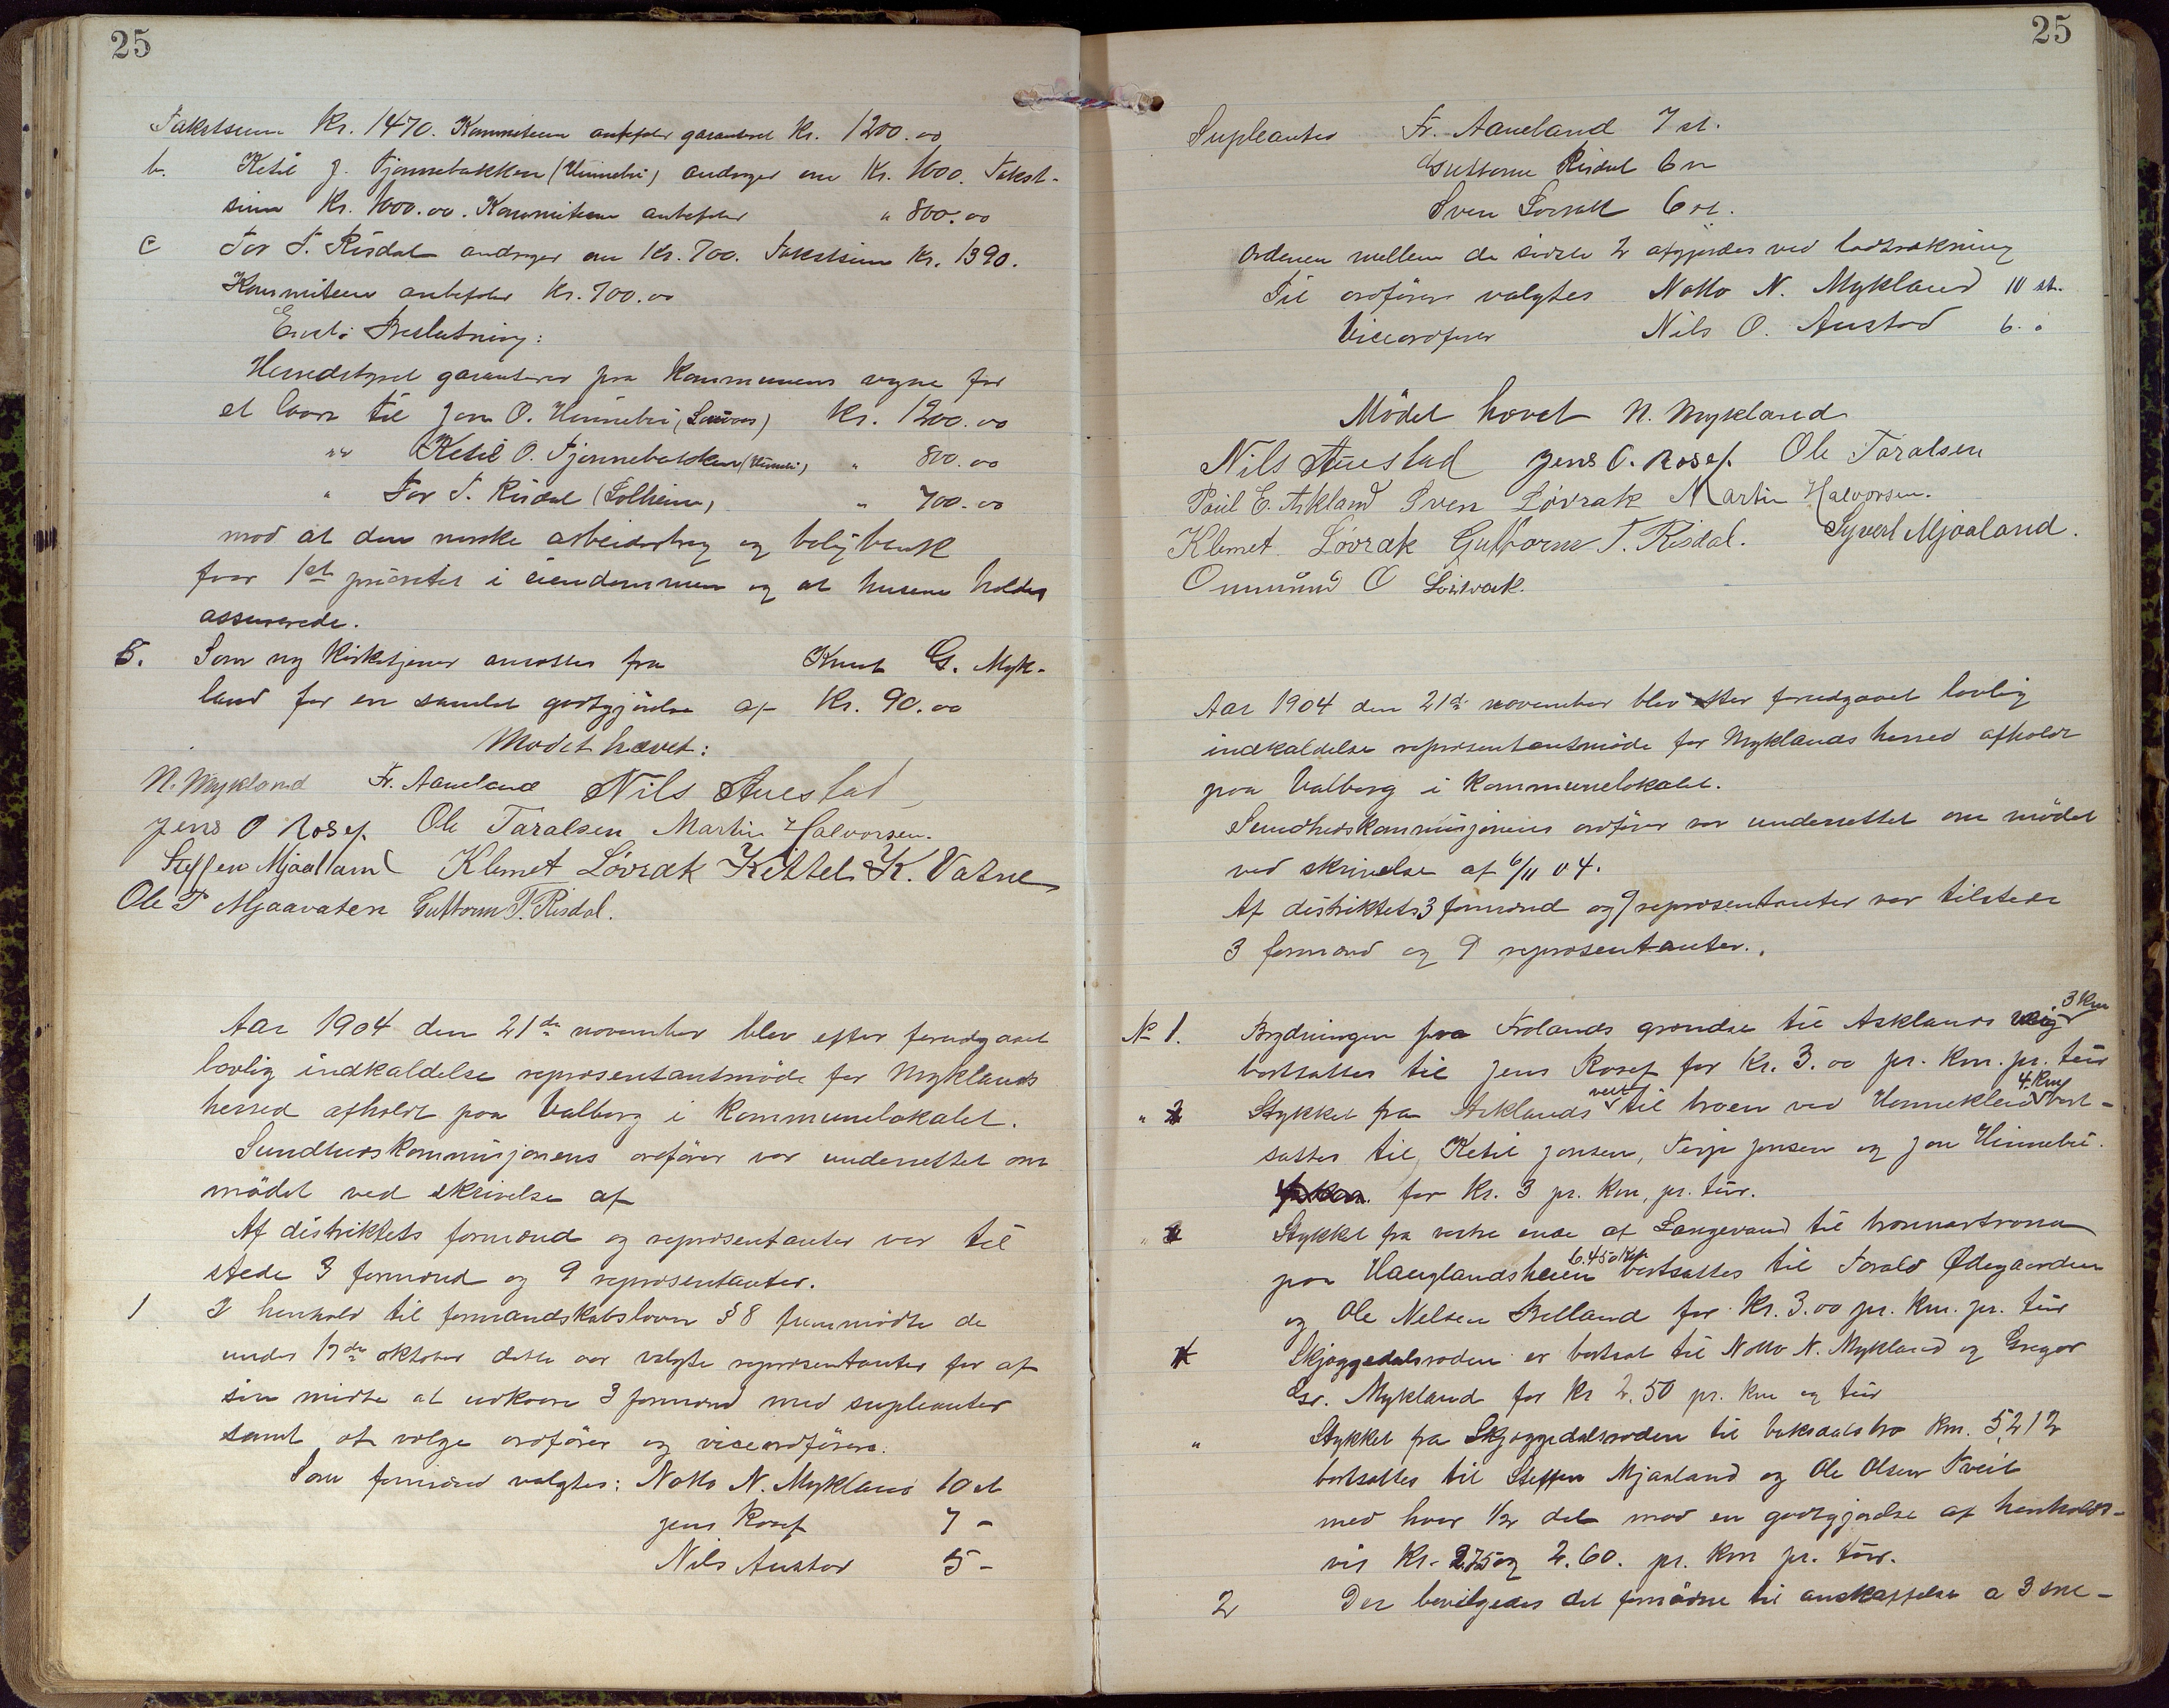 25
Takstsum Kr. 1470. Kommiteen anbefaler garanteret Kr. 1200.00
b. Ketil J. Tjønnebakken (Hinnebu) andrager om Kr. 1600. Takst-
sum Kr. 1000.00. Kommiteen anbefaler " 800.00
c Tor T. Risdal andrager om Kr. 700. Takstsum Kr. 1390.
Kommiteen anbefaler Kr. 700.00
Enst: Beslutning:
Herredstyret garanterer paa kommunens vegne for
et laan til Jon O. Hinnebu, Kr. 1200.00
"" Ketil O. Tjønnebakken (Hinnebu) " 800.00
" Tor T. Risdal (Solheim) " 700.00
mod at den norske arbeiderbrug og boligbank
faar 1ste prioritet i eiendommen og at husene holdes
assurerede.
5. Som ny kirketjener ansattes fra Knut G. Myk-
land for en samlet godtgjørelse af Kr. 90.00
Mødet hævet:
N. Mykland Fr. Aaneland Nils Auestad
Jens O Rosef. Ole Taralsen Martin Halvorsen.
Steffen Mjaaland Klemet Løvrak Kittel K. Vatne
Ole T Mjaavaten Guttorm T. Risdal.
Aar 1904 den 21de november blev efter forudgaaet
lovlig indkaldelse repræsentantmøde for Myklands
herred afholdt paa Valborg i kommunelokalet.
Sundhedskommisjonens ordfører var underrettet om
mødet ved skrivelse af
Af distriktets formænd og repræsentanter var til
stede 3 formænd og 9 repræsentanter.
1 I henhold til formandskabsloven § 8 fremmødte de
under 17de oktober dette aar valgte repræsentanter for af
sin midte at udkaare 3 formænd med supleanter
samt at vælge ordfører og viceordfører.
Som formænd valgtes: Notto N. Mykland 10 st
Jens Rosef 7 -
Nils Austad 5 -
25
Supleanter Fr. Aaneland 7 st.
Guttorm Risdal 6 "
Sven Løvrak 6 st.
Ordenen mellem de sidste 2 afgjordes ved lodtrækning
Til ordfører valgtes Notto N. Mykland 10 st.
Viceordfører Nils O. Austad 6. "
Mödet hævet N. Mykland
Nils Auestad Jens O. Rosef. Ole Taralsen
Paul E. Askland Sven Løvrak Martin Halvorsen.
Klemet Løvrak Guttorm T. Risdal. Syvert Mjaaland.
Onmund O Løvrak.
Aar 1904 den 21de november blev efter forudgaaet lovlig
indkaldelse repræsentantmøde for Myklands herred afholdt
paa Valborg i kommunelokalet.
Sundhedskommisjonens ordfører var underrettet om mødet
ved skrivelse af 6/11 04.
Af distriktets 3 formænd og 9 repræsentanter var tilstede
3 formænd og 9 repræsentanter.
No 1. Brydningen fra Frolands grændse til Asklands veig 3 Km
bortsattes til Jens Rosef for Kr. 3.00 pr. Km. pr. tur
" 2 Stykket fra Asklands vest til broen ved Hennekleiv 4 Km bort-
sattes til Ketil Jonsen, Terje Jensen og Jon Hinnebu.
for Kr. 3 pr. Km, pr. tur.
" 3 Stykket fra vestre ende af Langevand til
paa Hauglandsheien 6.450 Km bortsattes til Torald Ødegaarden
og Ole Nelsen Belland for Kr. 3.00 pr. Km. pr. tur
4 Skjæggedalsroden er bortsat til Notto N. Mykland og Gregor
Gr. Mykland for Kr 2.50 pr. Km og tur
" Stykket fra Skjæggedalsroden til baksdals bro Km. 5,212
bortsattes til Steffen Mjaaland og Ole Olsen Tveit
med hver 1/2 del mod en godtgjørelse af henholds-
vis Kr. 2.75 og 2.60. pr. Km pr. tur.
2 Der bevilgedes det fornødne til anskaffelse a 3 sne-